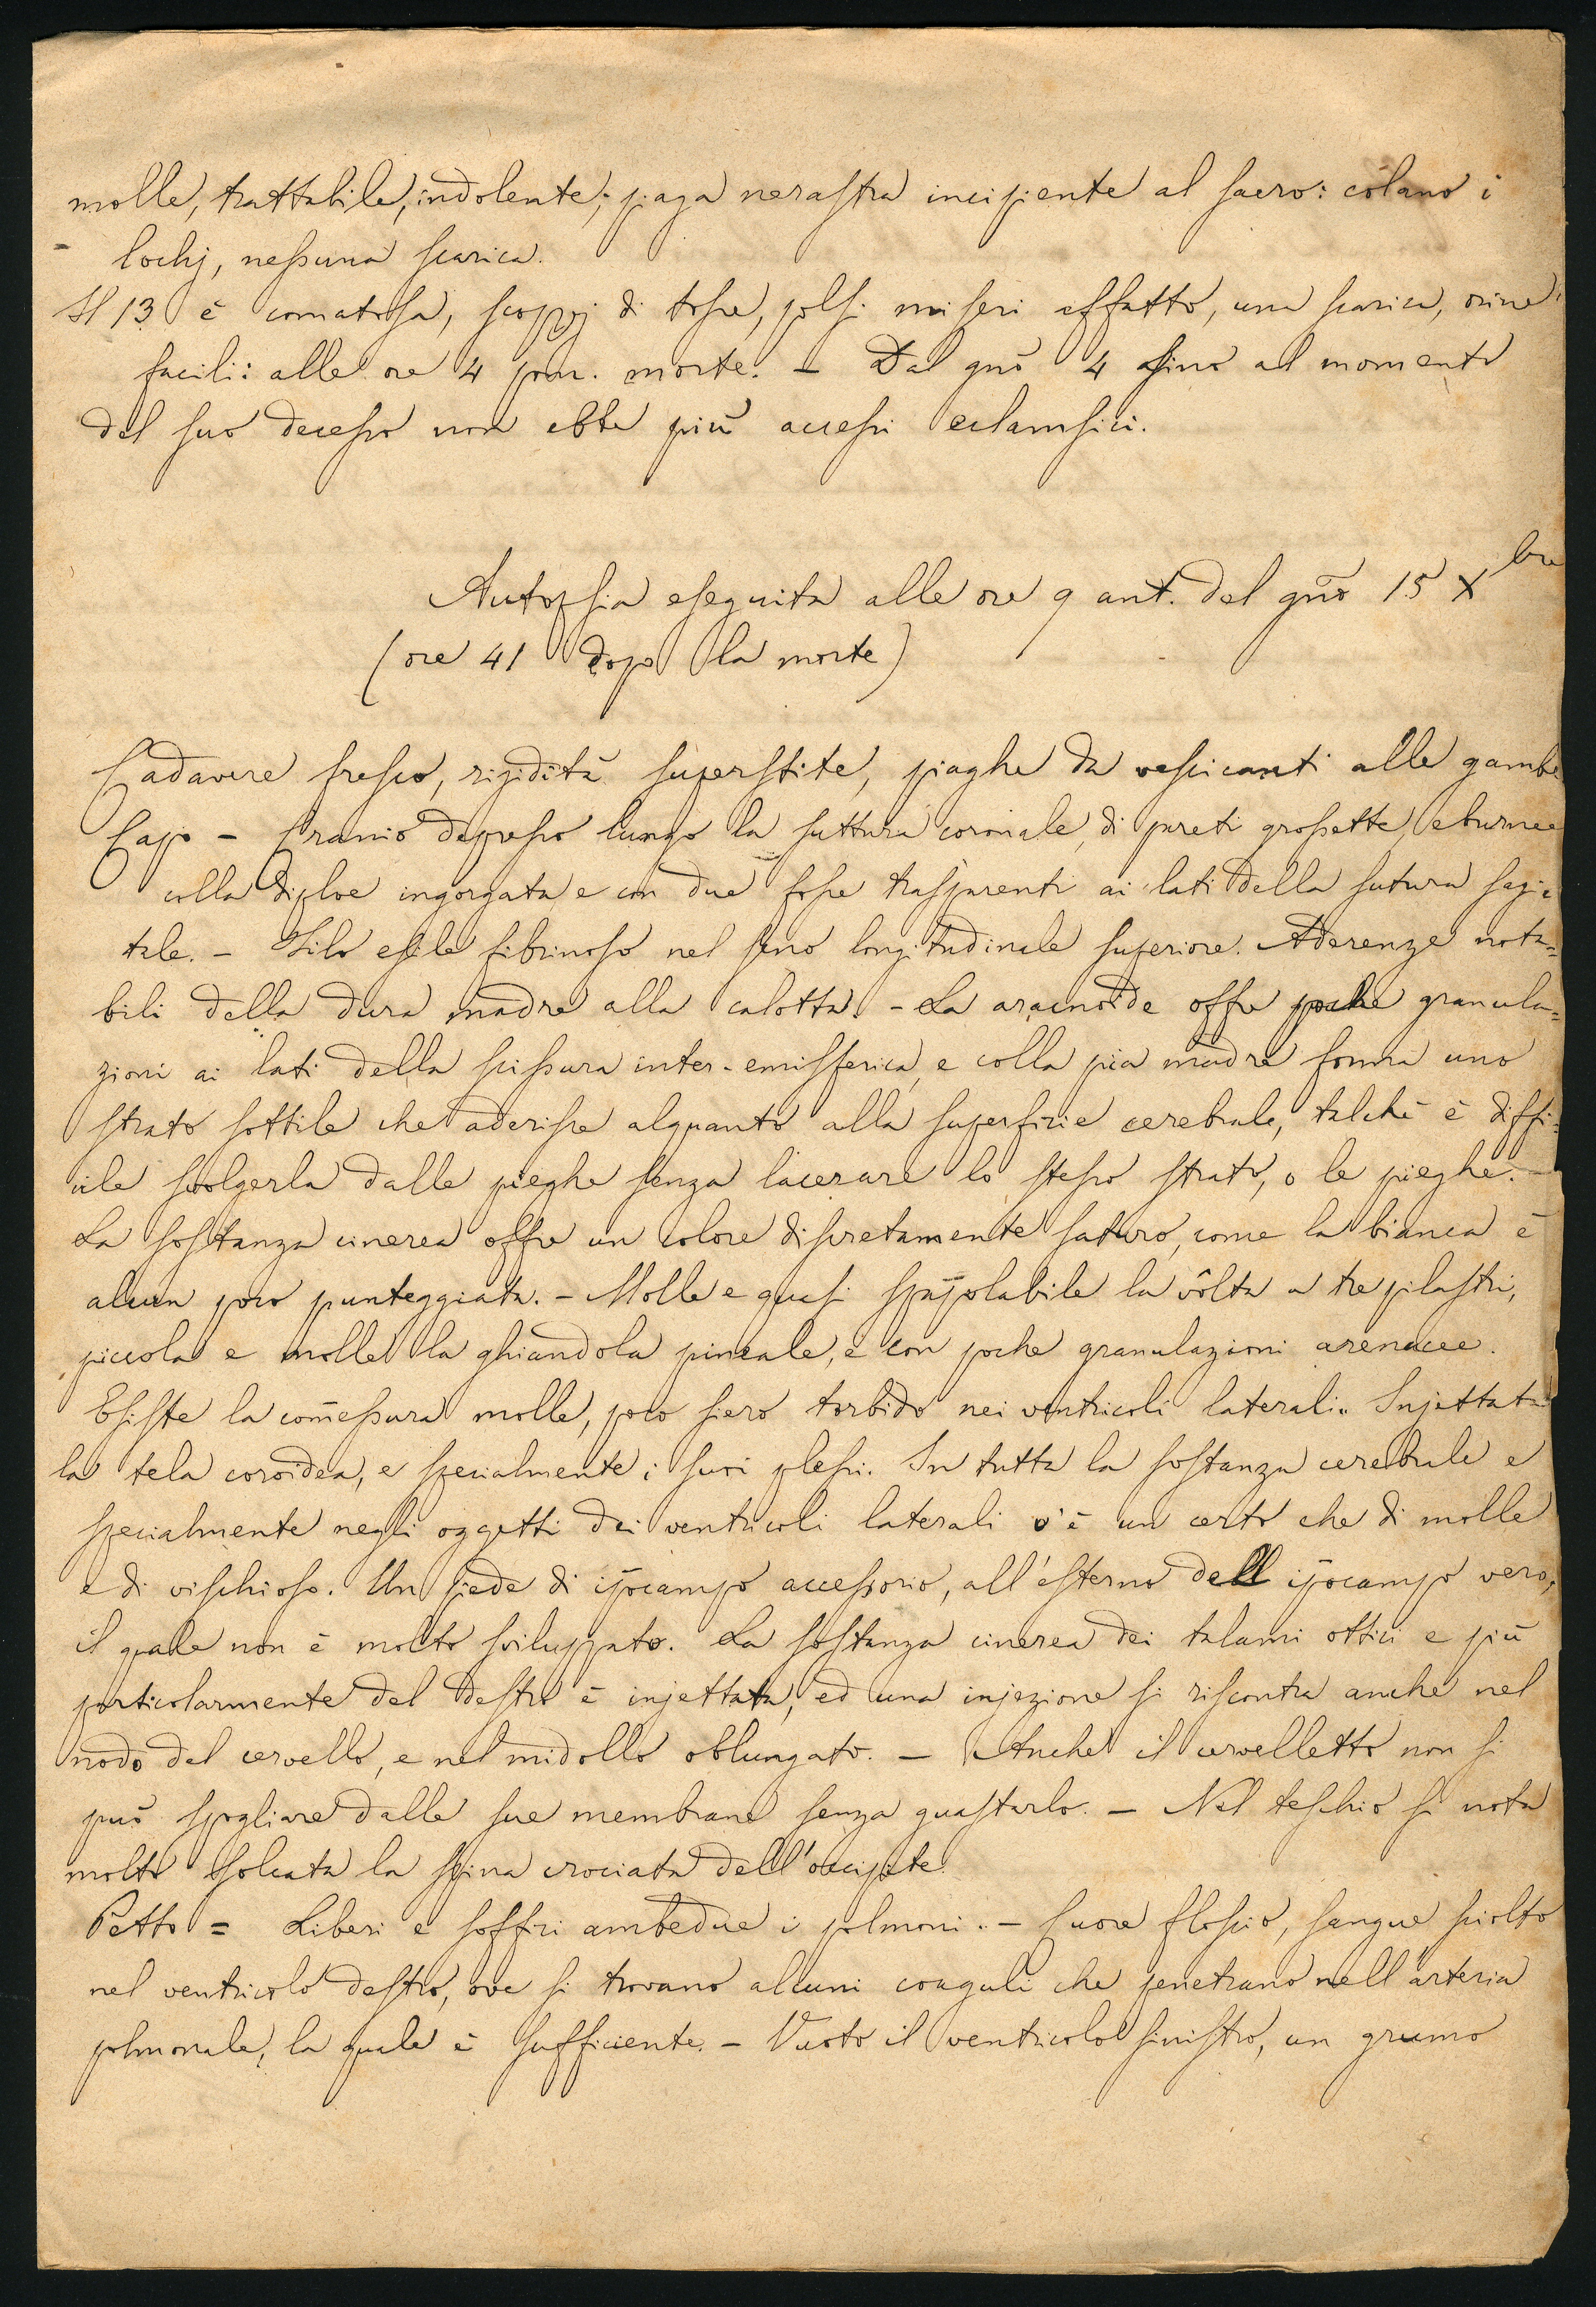 molle, trattabile, indolente; piaga nerastra incipiente al sacro: colano i
lochj, nessuna scarica.
Il 13 è comatosa, scoppj di tosse, polsi miseri affatto, una scarica, orine
facili: alle ore 4 pom. morte. - Dal gno 4 fino al momento
del suo decesso non ebbe più accessi eclampsici.
Autopsia eseguita alle ore 9 ant. del gno 15 Xbre
(ore 41 dopo la morte)
Cadavere fresco, rigidità superstite, piaghe da vescicanti alle gambe
Capo - Cranio depresso lungo la suttura coronale, di pareti grossette, eburnee
colla diploe ingorgata e con due fosse trasparenti ai lati della sutura sagit
tale. - Filo esile fibrinoso nel seno longitudinale superiore. Aderenze nota=
bili della dura madre alla calotta. - La aracnoide offre poche granula=
zioni ai lati della scissura inter-emisferica, e colla pia madre forma uno
strato sottile che aderisce alquanto alla superfizie cerebrale, talchè è diffi=
cile svolgerla dalle pieghe senza lacerare lo stesso strato, o le pieghe. -
La sostanza cinerea offre un colore discretamente saturo, come la bianca è
alcun poco punteggiata. - Molle e quasi spappolabile la vôlta a tre pilastri,
piccola e molle la ghiandola pineale, e con poche granulazioni arenacee.
Esiste la comessura molle, poco siero torbido nei ventricoli laterali. Injettata
la tela coroidea, e specialmente i suoi plessi. In tutta la sostanza cerebrale e
specialmente negli oggetti dei ventricoli laterali v'è un certo che di molle
e di vischioso. Un piede di ipocampo accessorio, all'esterno dell ipocampo vero,
il quale non è molto sviluppato. La sostanza cinerea dei talami ottici e più
particolarmente del destro è injettata, ed una injezione si riscontra anche nel
nodo del cervello, e nel midollo oblungato. - Anche il cervelletto non si
può spogliare dalle sue membrane senza guastarlo. - Nel teschio si nota
molto solcata la spina crociata dell'occipite.
Petto = Liberi e soffici ambedue i polmoni. - Cuore floscio, sangue sciolto
nel ventricolo destro, ove si trovano alcuni coaguli che penetrano nell'arteria
polmonale, la quale è sufficiente. - Vuoto il ventricolo sinistro, un grumo